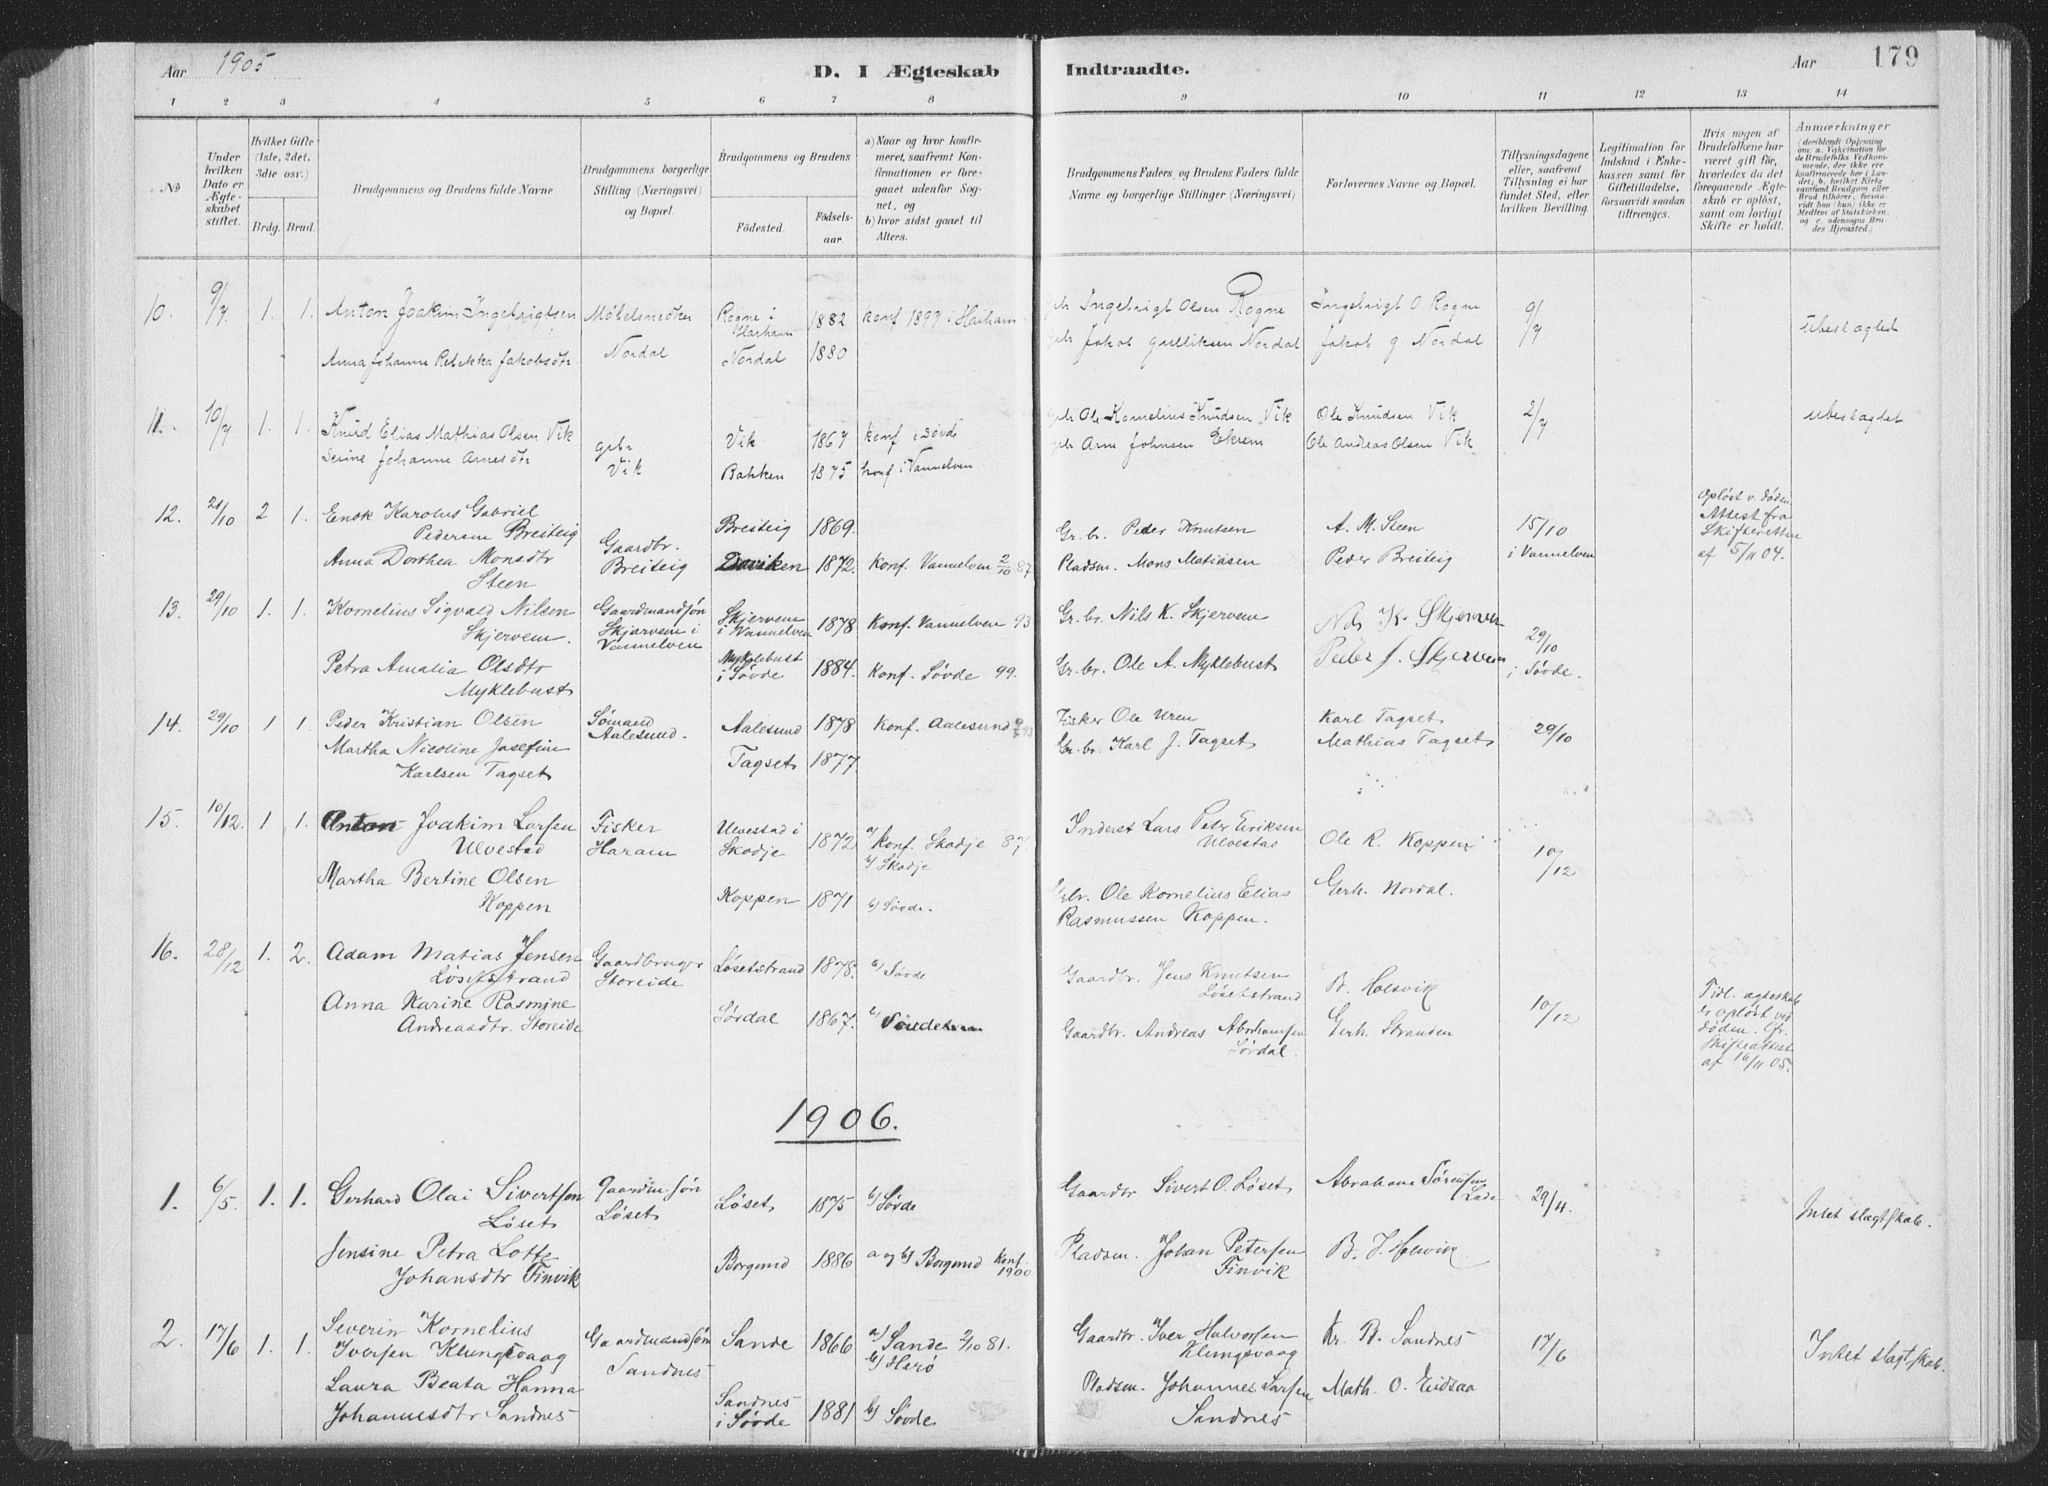 Aar 1905
D. I Ægteskab Indtraadte.
Aar 179
1 2 3 4 5 6 7 8 9 10 11 12 13 14
No
Under hvilken Dato er Ægteskabet stiftet.
Hvilket Gifte (1ste, 2det, 3die osv.)
Brdg. Brud.
Brudgommens og Brudens fulde Navne
Brudgommens borgerlige Stilling (Næringsvei) og Bopæl.
Brudgommens og Brudens
Fødested. Fødselsaar.
a) Naar og hvor konfirmeret, saafremt Konfirmationen er foregaaet udenfor Sognet, og
b) hvor sidst gaaet til Alters.
Brudgommens Faders og Brudens Faders fulde Navne og borgerlige Stillinger (Næringsvei)
Forlovernes Navne og Bopæl.
Tillysningsdagene eller, saafremt Tillysning ei har fundet Sted, efter hvilken Bevilling.
Legitimation for Indskud i Enkekassen samt for Giftetilladelse, forsaavidt saadan tiltrænges.
Hvis nogen af Brudefolkene har været gift før, hvorledes da det foregaaende Ægteskab er opløst, samt om lovligt Skifte er holdt.
Anmærkninger
10. 9/7 1. 1. Anton Joakim Ingebrigtsen Møbelsnedker Rogne i Harham 1882 konf 1897 i Harham Ingebrigt Olsen Rogne Ingebrigt O Rogne 9/7 ubeslægted
Anna Johanne Rebekka Jakobsdtr Nordal Nordal 1880 Jakob Gulliksen Nordal Jakob G. Nordal
11. 10/7 1. 1. Knud Elias Mathias Olsen Vik gbr Vik Vik 1867 konf i Søvde gbr Ole Kornelius Knudsen Vik Ole Knudsen Vik 2/7 ubeslægtet
Serine Johanne Arnesdtr Bakken 1875 konf i Vannelven gbr Arne Johnsen Ekrem Ole Andreas Olsen Vik
12. 21/10 2 1. Enok Karolus Gabriel
Pedersen Breiteig Gaardbr. Breiteig Breiteig 1869. Gr. br. Peder Knutsen A. M. Steen 15/10 i Vannelven Opløst v. døden. Attest fra Skifteretten af 5/11 04.
Anna Dorthea Monsdtr
Steen Daviken 1872. Konf. Vannelven 2/10 87 Pladsm. Mons Matiasen Peder Breiteig
13. 29/10 1. 1. Kornelius Sigvald Nilsen
Skjervem. Gaardmandsøn Skjervem i Vannelven Skjervem i Vannelven 1878 Konf. Vannelven 93 Gr. br. Nils K. Skjervem Nils K. Skjervem 29/10 i Søvde.
Petra Amalia Olsdtr
Myklebust Myklebust i Søvde 1884. Konf. Søvde 99. Gr. br. Ole A. Myklebust Peder J. Skjervem
14. 29/10 1 1 Peder Kristian Olsen Sømand Aalesund. Aalesund 1878 Konf. Aalesund Fisker Ole Uren Karl Tagset 29/10
Martha Nicoline Josefine
Karlsen Tagset Tagset 1877. Gr. br. Karl J. Tagset Mathias Tagset
15. 10/12. 1 1. Anton Joakim Larsen
Ulvestad Fisker Haram Ulvestad i Skodje 1872 a/ konf. Skodje 87. b/ Skodje Inderst Lars Peter Eriksen Ulvestad Ole R. Koppen 10/12
Martha Bertine Olsen
Koppen Koppen 1871 b/ Søvde. Gbr. Ole Kornelius Elias Rasmussen Koppen. Gerh. Nordal.
16. 28/12 1. 2. Adam Matias Jensen
Løsetstrand Gaardbruger Storeide Løsetstrand 1878. b/ Søvde Gaardbr. Jens Knutsen Løsetstrand B. Helsvik 10/12 Tidl. ægteskab er opløst ved døden. Cfr. Skifteattest af 16/11 05.
Anna Karine Rasmine
Andreasdtr. Storeide Sørdal 1867. b/ Gaardbr. Andreas Abrahamsen Sørdal. Gerh. Stranden
1906.
1. 6/5. 1. 1. Gerhard Olai Sivertsen
Løset Gaardm. søn Løset Løset 1875 b/ Søvde Gaardbr Sivert O. Løset Abraham Sørensen Lade 29/4. Intet slægtskab.
Jensine Petra Lotte
Johansdtr Finvik Borgund 1886 a og b/ Borgund Konf. 1900 Pladsm. Johan Petersen Finvik
2. 17/6 1. 1. Severin Kornelius
Iversen Klungsvaag Gaardmandsøn Sandnes Sande 1866 a/ Sande 2/10 81. b/ Herø Gaardbr. Iver Halvorsen Klungsvaag Kr. B. Sandnes 17/6 Intet slægtskab.
Laura Beata Hanna
Johannesdtr Sandnes Sandnes i Søvde 1881 b/ Søvde Pladsm. Johannes Larsen Sandnes Math. O. Eidsaa